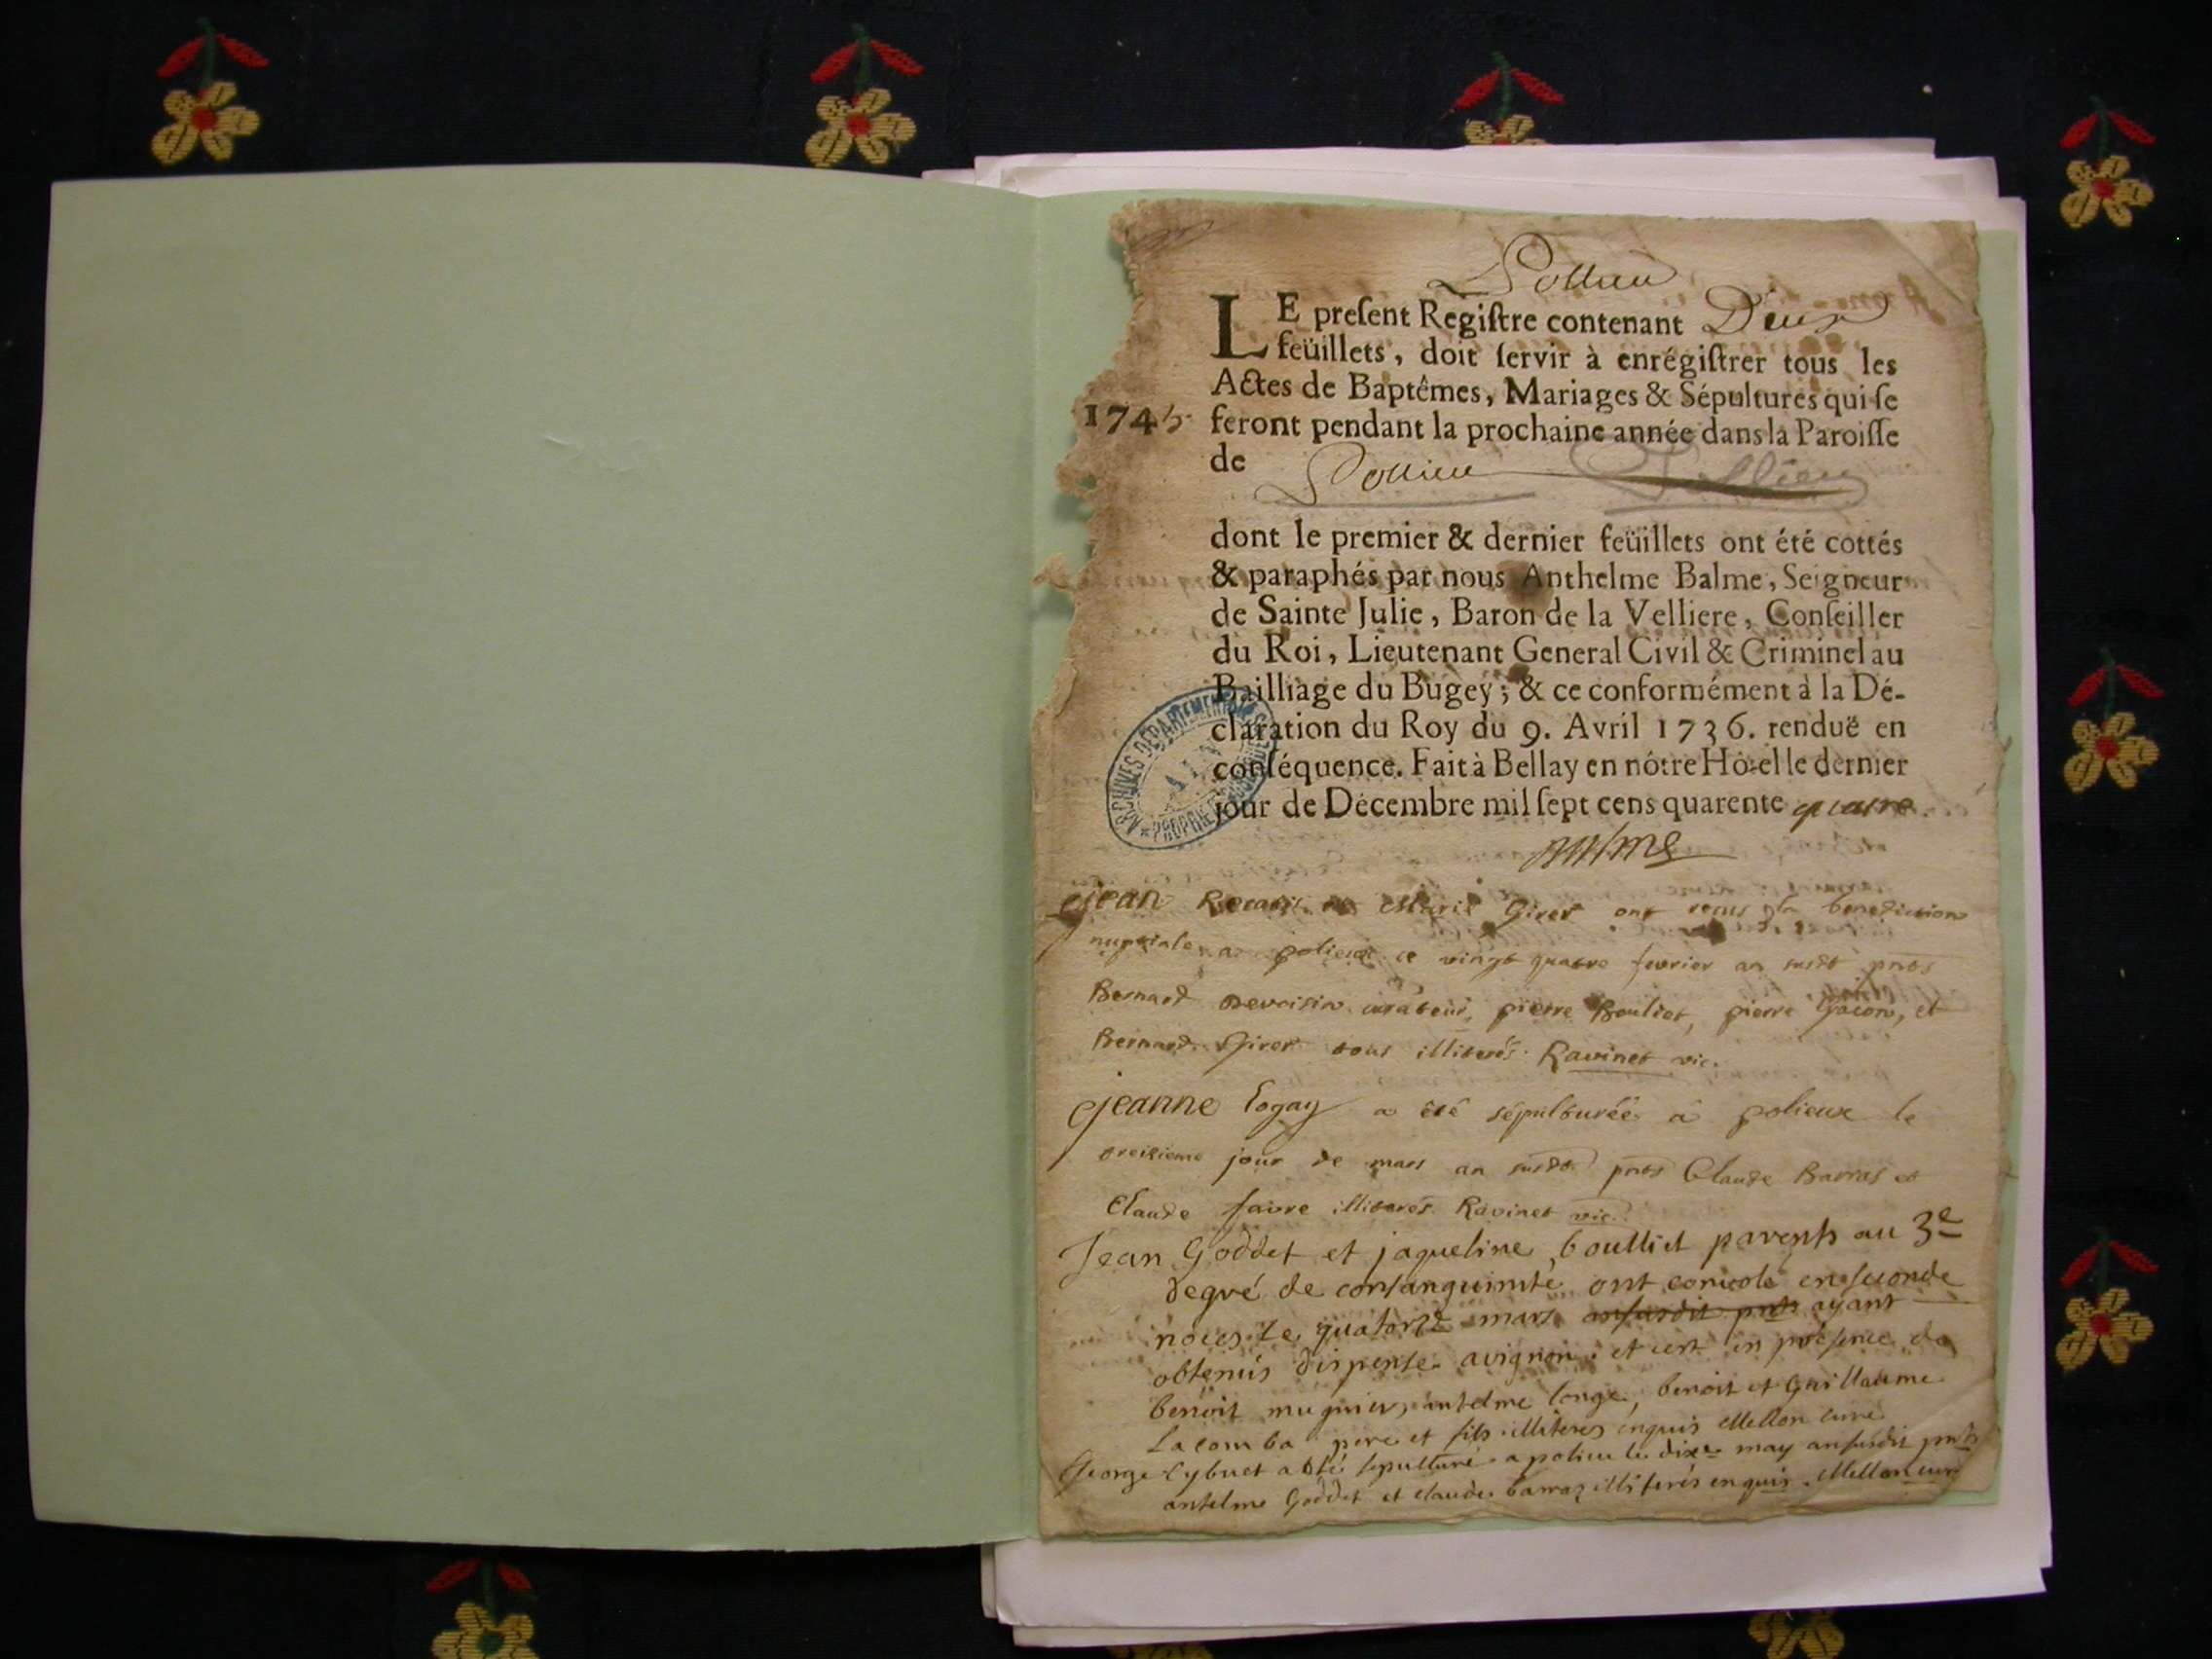 Pollieu
LE preſent Regiſtre contenant Deux
feüillets, doit ſervir à enrégiſtrer tous les
Actes de Baptêmes, Mariages & Sépultures qui ſe
1745 feront pendant la prochaine année dans la Paroiſſe
de Pollieu Pollieu
dont le premier & dernier feüillets ont été cottés
& paraphés par nous Anthelme Balme, Seigneur
de Sainte Julie, Baron de la Velliere, Conſeiller
du Roi, Lieutenant General Civil & Criminel au
Bailliage du Bugey; & ce conformément à la Dé-
claration du Roy du 9. Avril 1736. renduë en
conſéquence. Fait à Bellay en nôtre Hôtel le dernier
jour de Décembre mil ſept cens quarente quatre.
ARCHIVES DÉPARTEMENTALES
AIN
PROPRIÉTÉ PUBLIQUE
Balme
jean et Marie Girer ont reçus la benediction
nuptiale a polieux ce vingt quatre fevrier an susdt pnts
Bernard curateur, pierre Bouliet, pierre Gacon, et
Bernard Girer tous illiterés. Ravinet vic.
jeanne Logay a été sépulturéé à polieux le
treizieme jour de mars an susdt pnts Claude Barras et
Claude faivre illiterés Ravinet vic.
Jean Goddet et jaqueline boulliet parents au 3e
degré de consanguinité ont convolé en seconde
noces le quatorze mars an susdit pnts ayant
obtenus dispense avignon. et cest en présence de
benoit mugnier, antelme longe, benoit et Guillaume
Lacomba pere et fils illiteres enquis Mellon curé
George Cybuet a été sépulturé a polieu le dixe may an susdit pnts
antelme Goddet et claude barraz illiterés enquis. Mellon curé